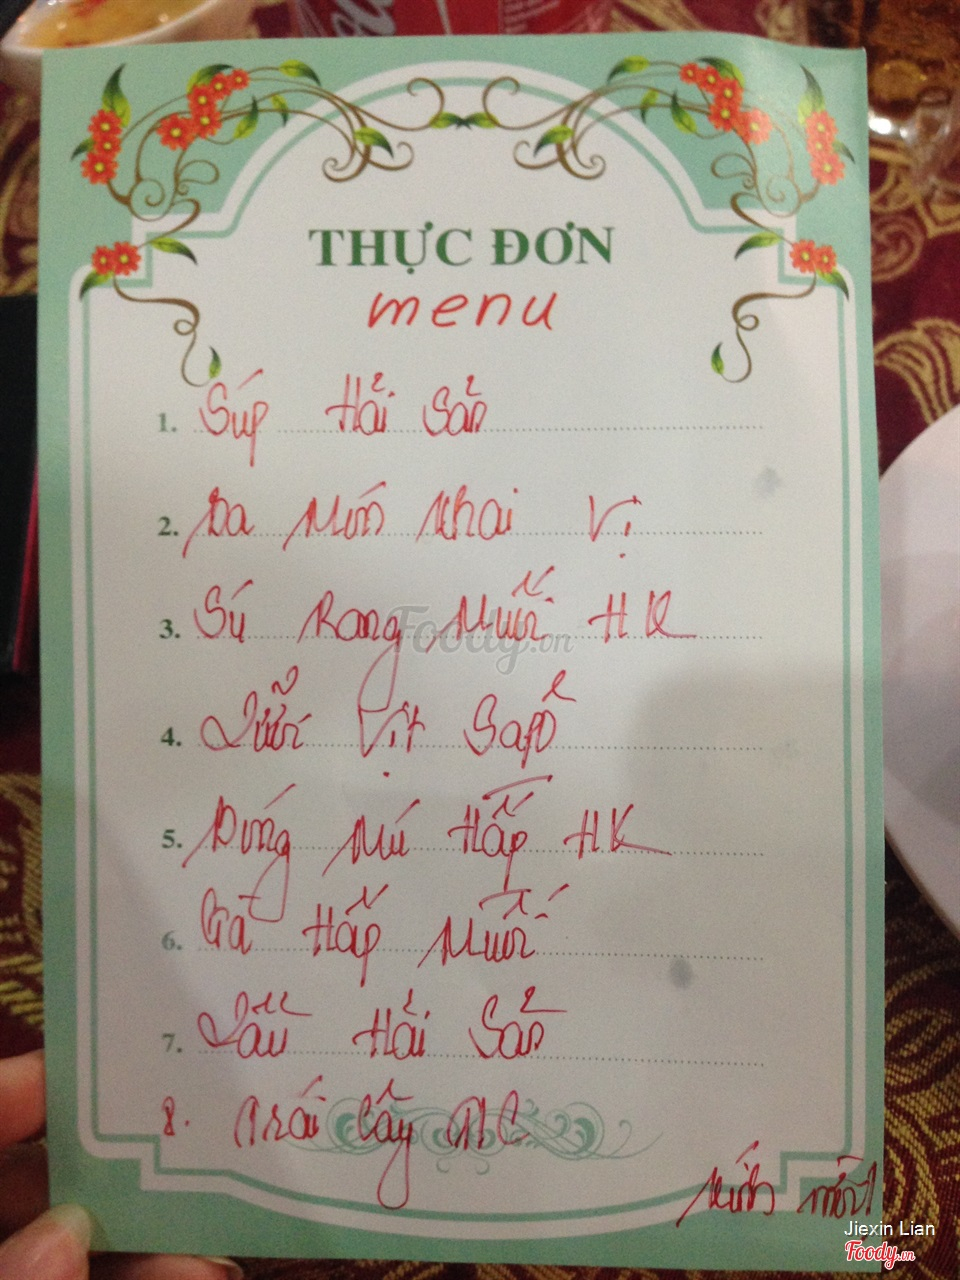 THỰC ĐƠN
menu
1. Súp Hải Sản
2. Ba Món Khai Vị
3. Sú Rang Muối HK
4. Lưỡi Vịt Sapô
5. Bóng Mú Hấp HK
6. Gà Hấp Muối
7. Lẩu Hải Sản
8. Trái Cây TC
Kính mời!
Foody.vn
Jiexin Lian
Foody.vn